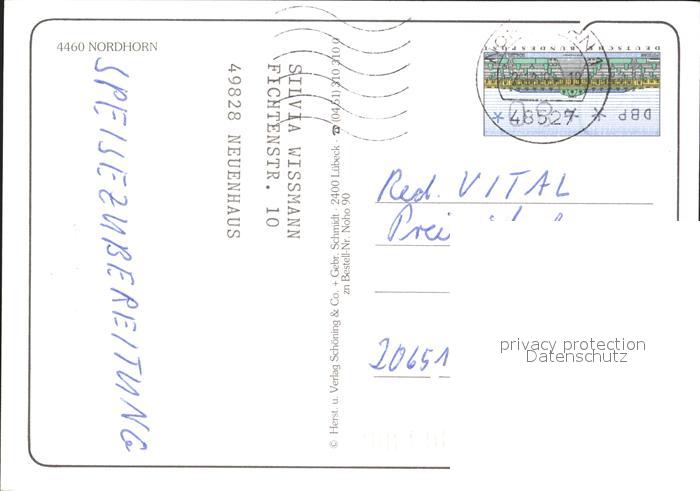 4460 NORDHORN
SPEISEZUBEREITUNG
SILVIA WISSMANN
FICHTENSTR. 10
49828 NEUENHAUS
© Herst. u. Verlag Schöning & Co. + Gebr. Schmidt · 2400 Lübeck · ☎ (04 51) 310 310 0
zn Bestell-Nr. Noho 90
DEUTSCHE BUNDESPOST
DBP
48527
Red. VITAL
20651
privacy protection
Datenschutz